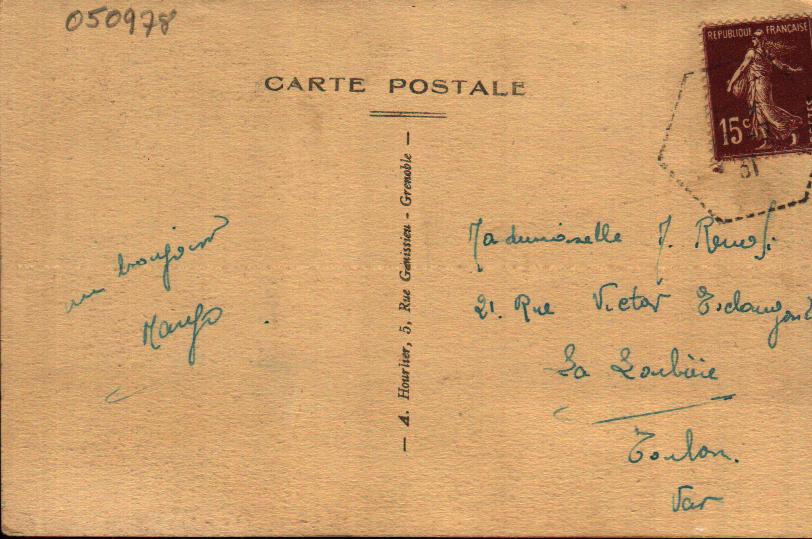 050978
CARTE POSTALE
REPUBLIQUE FRANÇAISE
15c
31
— A. Hourlier, 5, Rue Génissieu - Grenoble —
un bonjour
Mademoiselle J.
21. Rue Victor
La Loubière
Toulon.
Var